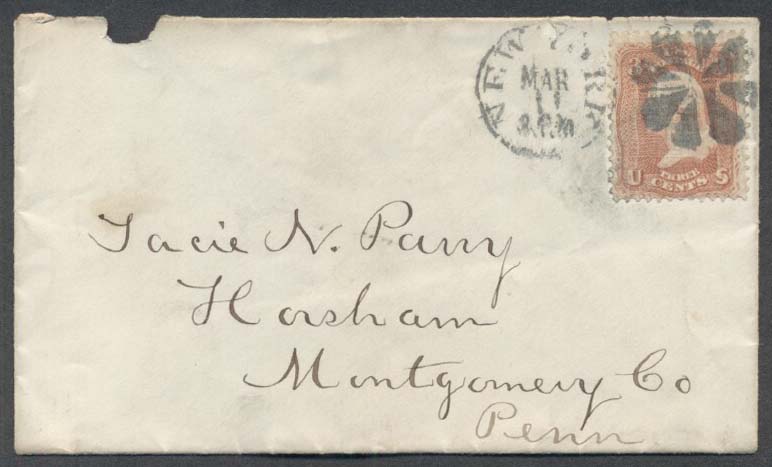 NEW YORK
MAR
11
U THREE CENTS S
Tacie N. Parry
Horsham
Montgomery Co
Penn